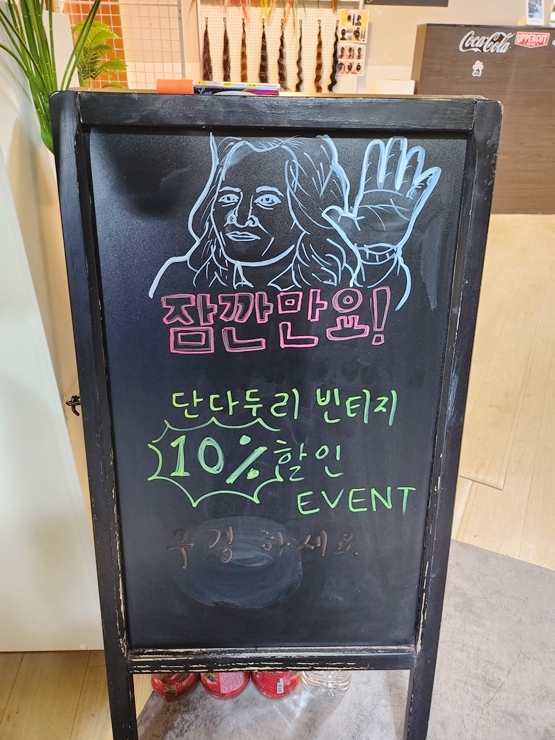 Coca-Cola
UPPERCUT
잠깐만요!
단다두리 빈티지
10% 할인
EVENT
구경 하세요